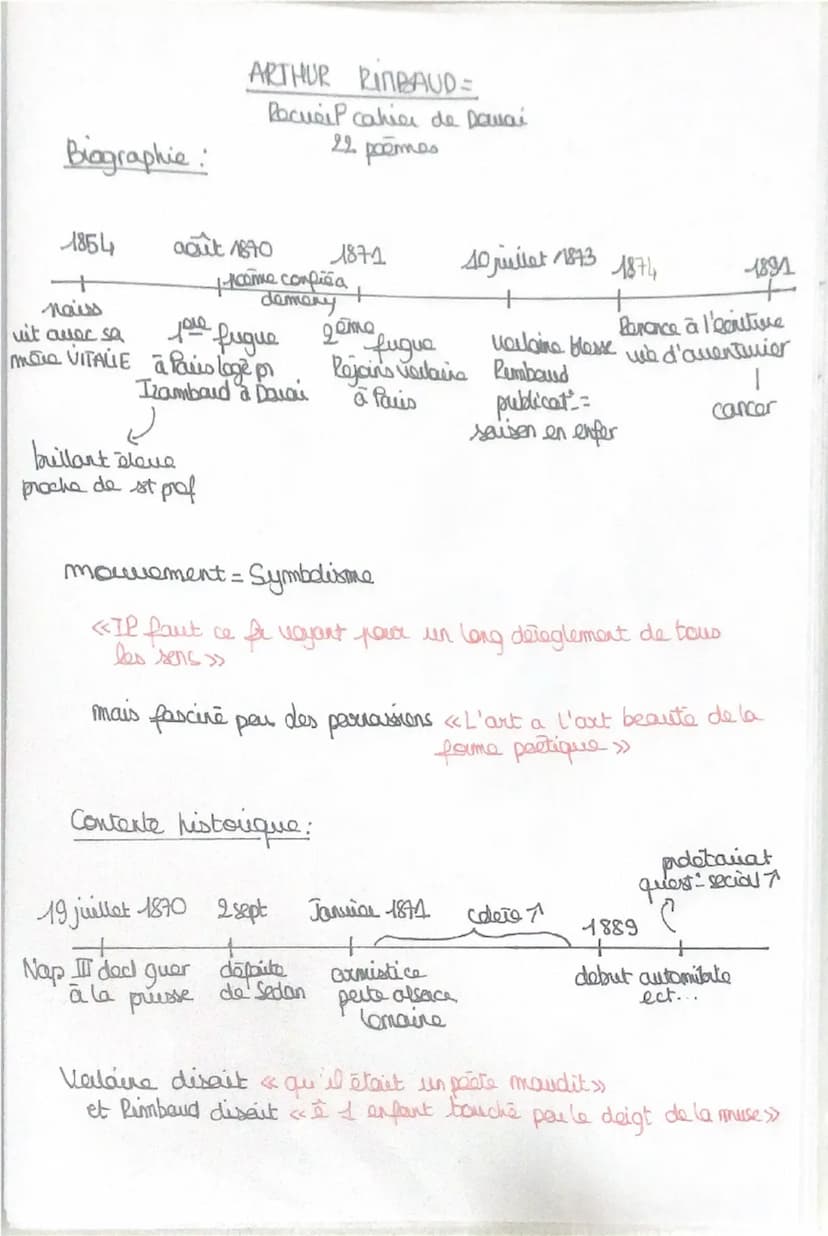 ARTHUR RIMBAUD =
Recueil cahier de Douai
22 poèmes
Biographie :
1854
août 1870
1871
10 juillet 1873
1874
1891
poème confié a
demeny
naiss
vit avec sa
mère VITALIE
1ère fugue
à Paris logé pr
Izambard à Douai
2ème
fugue
Rejoins Verlaine
à Paris
Verlaine blesse
Rimbaud
publicat° =
saison en enfer
Renonce à l'écriture
vie d'aventurier
cancer
brillant éleve
proche de st prof
mouvement = Symbolisme
«Il faut ce fr voyant pour un long déreglement de tous
les sens»
mais fasciné par des parnassions «L'art a l'art beauté de la
forme poétique»
Contexte historique :
prolétariat
quest° social ↗
19 juillet 1870
2 sept
Janvier 1871
colère ↗
1889
Nap III decl guer
à la prusse
défaite
de Sedan
armistice
perte alsace
lorraine
debut automibile
ect...
Verlaine disait «qu'il était un poète maudit»
et Rimbaud disait «ê 1 enfant touché par le doigt de la muse»